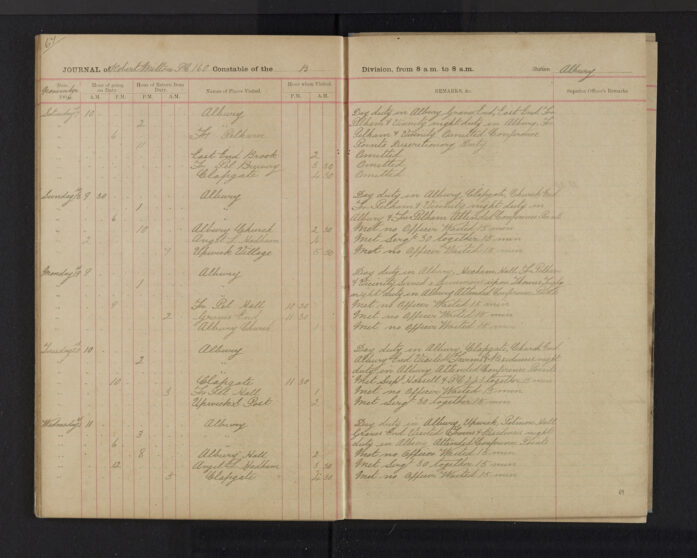 64
JOURNAL of Robert Wilton PC 160 Constable of the B Division, from 8 a.m. to 8 a.m. Station Albury
Date Hour of going on Duty. Hour of Return from Duty. Names of Places Visited. Hour when Visited. REMARKS, &c. Superior Officer's Remarks
November A.M. P.M. P.M. A.M. P.M. A.M.
Saturday 10 Albury Day duty in Albury Graves End, East End, Fur
2 Pelham & Vicinity night duty in Albury, Fur
6 Fur Pelham Pelham & Vicinity Omitted Conference
Points Discretionary Duty
East End Brook 2 Omitted
Fur Pel 3 30 Omitted
Clapgate 4 30 Omitted
Sunday 9 30 Albury Day duty in Albury, Clapgate, Church End
1 Fur Pelham & Vicinity night duty in
6 Albury & Fur Pelham Attended Conference Points
10 Albury Church 2 30 Met no Officer Waited 15 min
2 Angel L Hadham 4 Met Sergt 30 together 15 min
Upwick Village 5 30 Met no Officer Waited 15 min
Monday 9 Albury Day duty in Albury, Hall, Fur Pelham
1 & Vicinity Served a Summons upon Thomas
night duty in Albury Attended Conference Points
9 Fur Pel Hall 10 30 Met no Officer Waited 15 min
2 Graves End 11 30 Met no Officer Waited 15 min
Albury Church 1 Met no Officer Waited 15 min
Tuesday 10 Albury Day duty in Albury, Clapgate, Church End
2 Albury End Visited Farms & night
duty in Albury Attended Conference Points
10 Clapgate 11 30 Met Supt & PC together 15 min
3 Fur Pel Hall 1 Met no Officer Waited 15 min
Upwick S. Post 2 Met Sergt 30 together 15 min
Wednesday 11 Albury Day duty in Albury, Upwick, Patmore Hall
3 Graves End Visited Farms & night
6 duty in Albury Attended Conference Points
8 Albury Hall 2 Met no Officer Waited 15 min
12 Angel L Hadham 3 30 Met Sergt 30 together 15 min
5 Clapgate 4 30 Met no Officer Waited 15 min